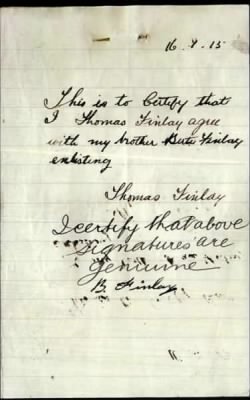 16.9.15
This is to Certify that
I Thomas Finlay agree
with my brother Finlay
enlisting
Thomas Finlay
I certify that above
signatures are
genuine
B. Finlay